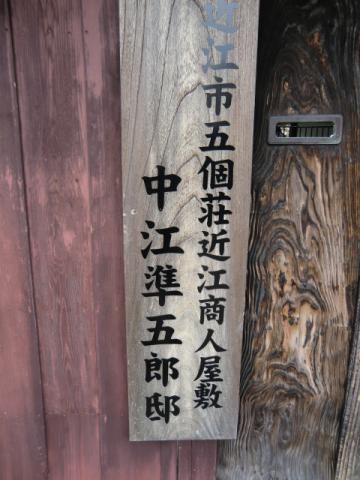 近江市五個荘近江商人屋敷
中江準五郎邸